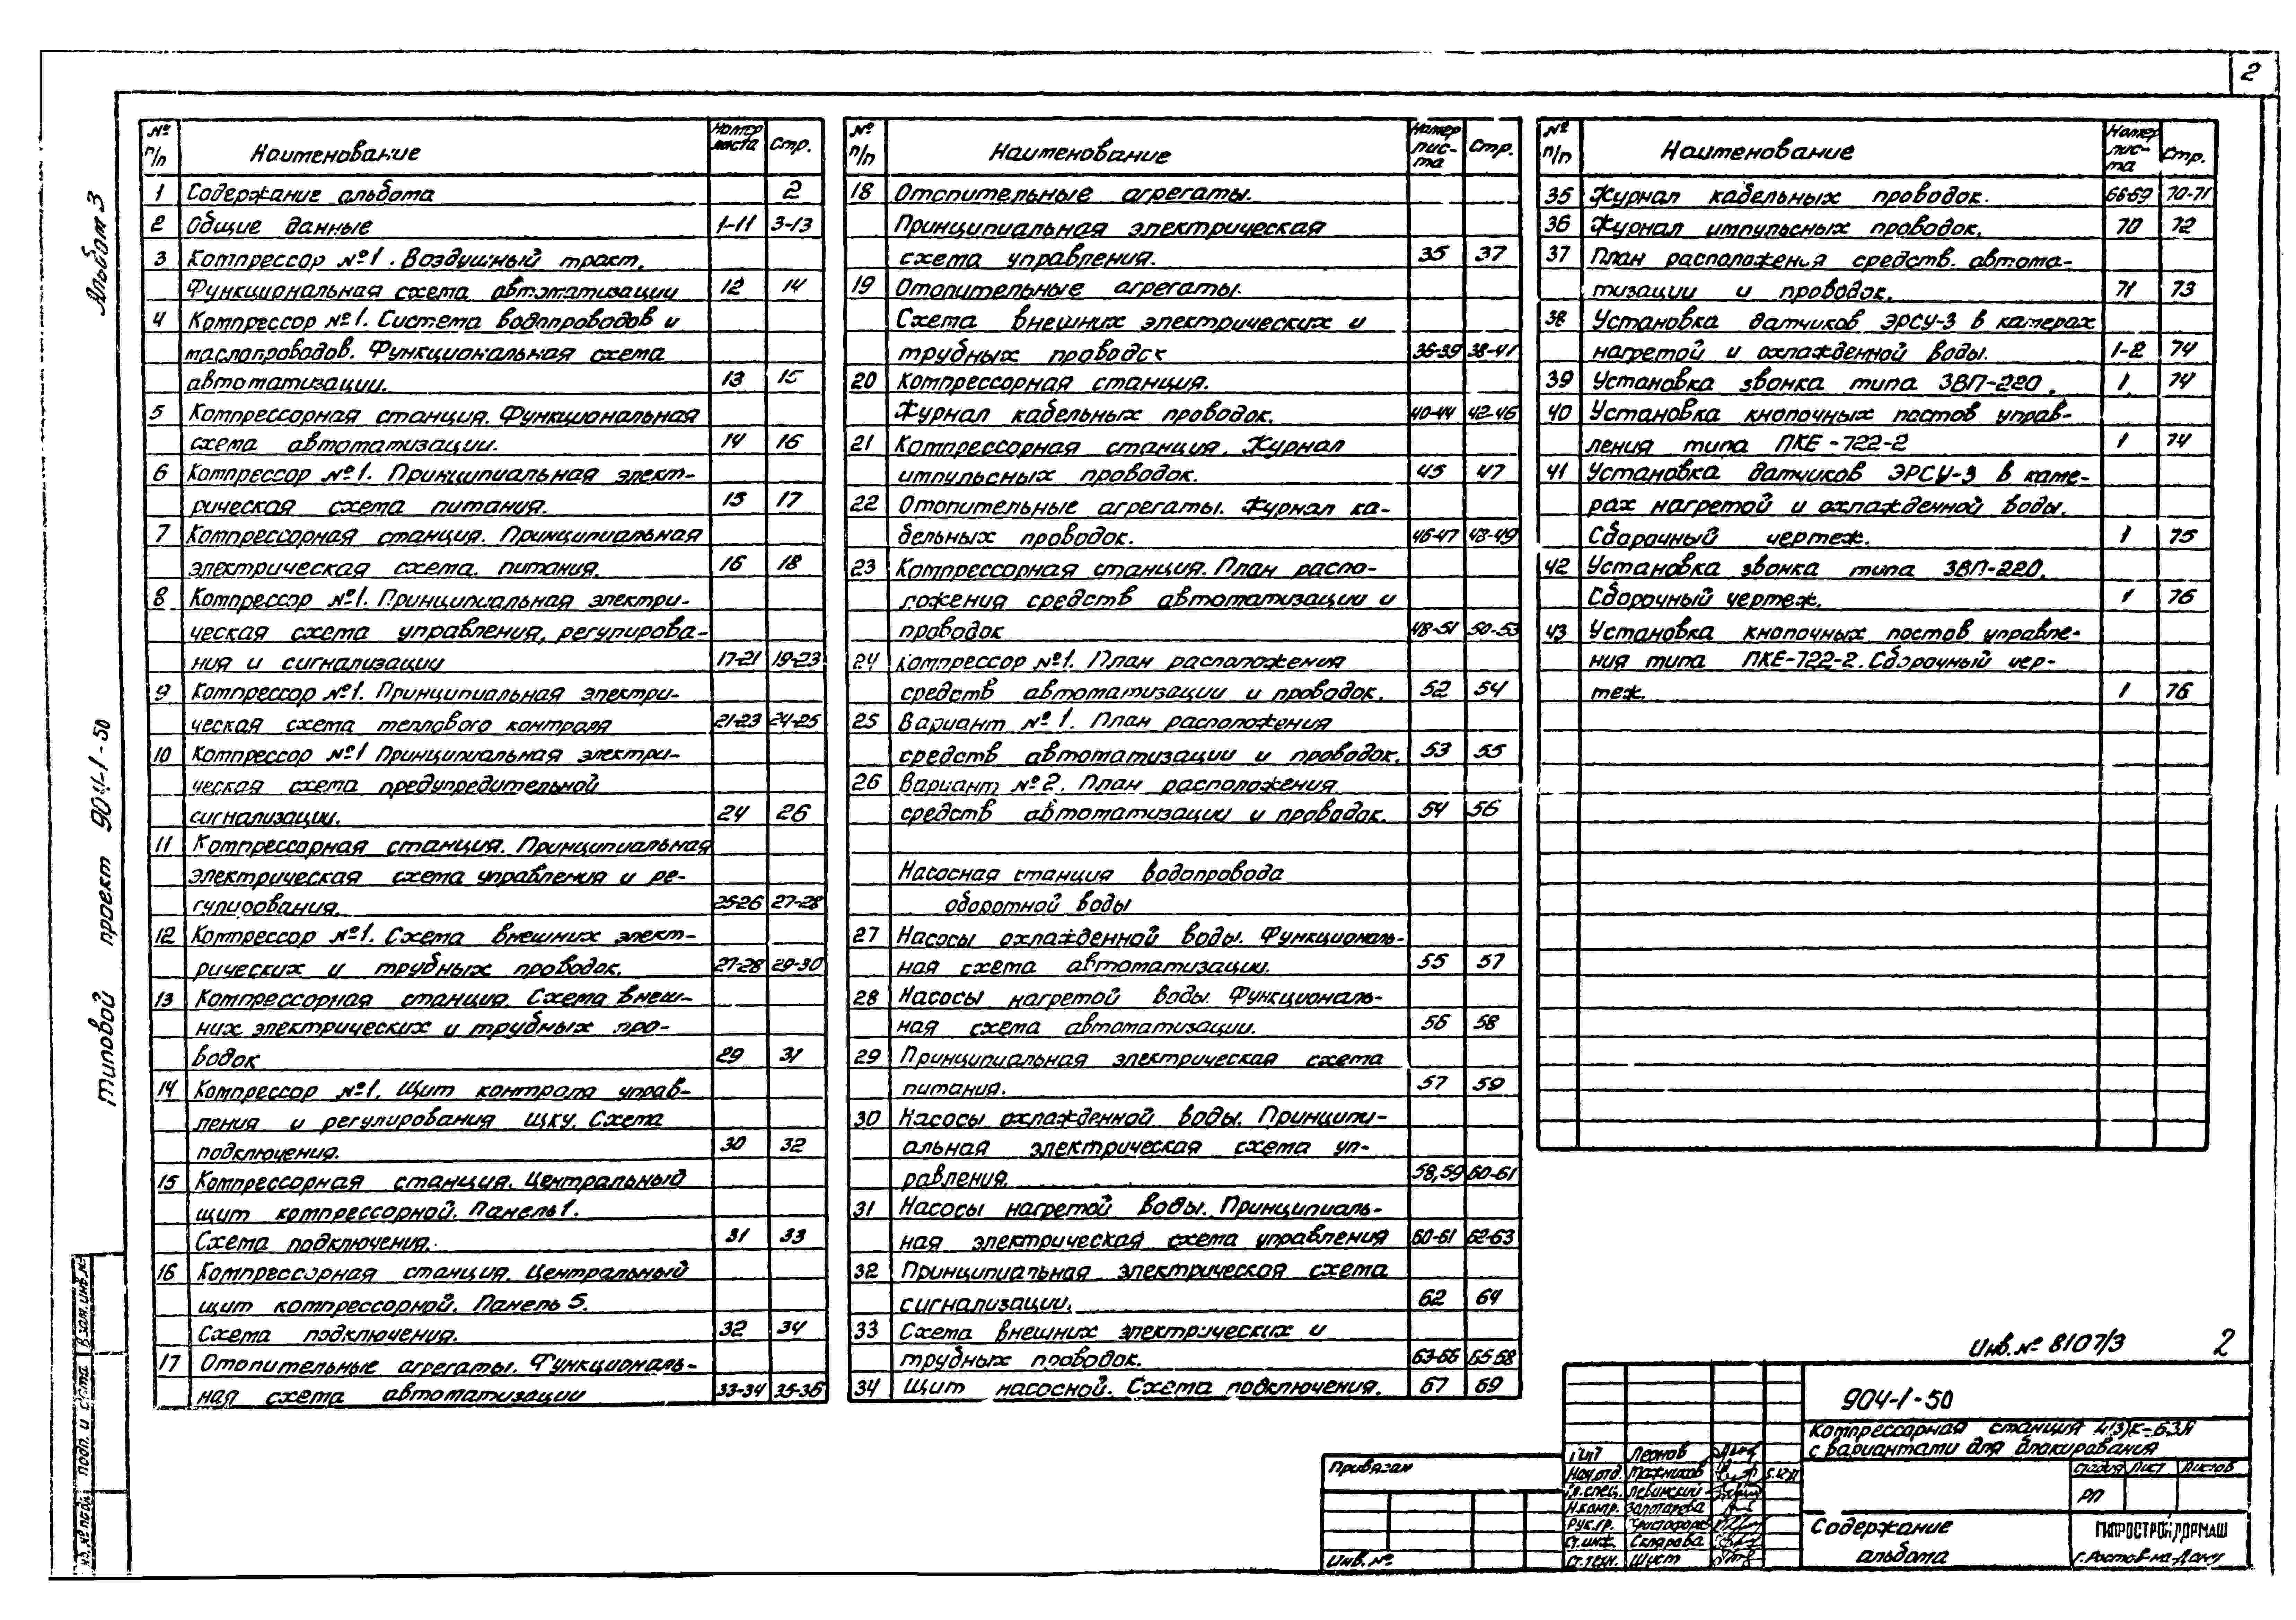 2
Альбом 3
Типовой проект 904-1-50
№ п/п Наименование Номер листа Стр.
1 Содержание альбома 2
2 Общие данные 1-11 3-13
3 Компрессор №1. Воздушный тракт.
Функциональная схема автоматизации 12 14
4 Компрессор №1. Система водопроводов и
маслопроводов. Функциональная схема
автоматизации. 13 15
5 Компрессорная станция. Функциональная
схема автоматизации. 14 16
6 Компрессор №1. Принципиальная элект-
рическая схема питания. 15 17
7 Компрессорная станция. Принципиальная
электрическая схема питания. 16 18
8 Компрессор №1. Принципиальная электри-
ческая схема управления, регулирова-
ния и сигнализации 17-21 19-23
9 Компрессор №1. Принципиальная электри-
ческая схема теплового контроля 21-23 24-25
10 Компрессор №1 Принципиальная электри-
ческая схема предупредительной
сигнализации. 24 26
11 Компрессорная станция. Принципиальная
электрическая схема управления и ре-
гулирования. 25-26 27-28
12 Компрессор №1. Схема внешних элект-
рических и трубных проводок. 27-28 29-30
13 Компрессорная станция. Схема внеш-
них электрических и трубных про-
водок 29 31
14 Компрессор №1. Щит контроля управ-
ления и регулирования ЩКУ. Схема
подключения. 30 32
15 Компрессорная станция. Центральный
щит компрессорной. Панель 1.
Схема подключения. 31 33
16 Компрессорная станция. Центральный
щит компрессорной. Панель 5.
Схема подключения. 32 34
17 Отопительные агрегаты. Функциональ-
ная схема автоматизации 33-34 35-36
№ п/п Наименование Номер лис-та Стр.
18 Отопительные агрегаты.
Принципиальная электрическая
схема управления. 35 37
19 Отопительные агрегаты.
Схема внешних электрических и
трубных проводок 36-39 38-41
20 Компрессорная станция.
Журнал кабельных проводок. 40-44 42-46
21 Компрессорная станция. Журнал
импульсных проводок. 45 47
22 Отопительные агрегаты. Журнал ка-
бельных проводок. 46-47 48-49
23 Компрессорная станция. План распо-
ложения средств автоматизации и
проводок 48-51 50-53
24 Компрессор №1. План расположения
средств автоматизации и проводок. 52 54
25 Вариант №1. План расположения
средств автоматизации и проводок. 53 55
26 Вариант №2. План расположения
средств автоматизации и проводок. 54 56
Насосная станция водопровода
оборотной воды
27 Насосы охлажденной воды. Функциональ-
ная схема автоматизации. 55 57
28 Насосы нагретой воды. Функциональ-
ная схема автоматизации. 56 58
29 Принципиальная электрическая схема
питания. 57 59
30 Насосы охлажденной воды. Принципи-
альная электрическая схема уп-
равления. 58,59 60-61
31 Насосы нагретой воды. Принципиаль-
ная электрическая схема управления 60-61 62-63
32 Принципиальная электрическая схема
сигнализации. 62 64
33 Схема внешних электрических и
трубных проводок. 63-66 65-68
34 Щит насосной. Схема подключения. 67 69
№ п/п Наименование Номер лис-та Стр.
35 Журнал кабельных проводок. 68-69 70-71
36 Журнал импульсных проводок. 70 72
37 План расположения средств автома-
тизации и проводок. 71 73
38 Установка датчиков ЭРСУ-3 в камерах
нагретой и охлажденной воды. 1-2 74
39 Установка звонка типа ЗВП-220. 1 74
40 Установка кнопочных постов управ-
ления типа ПКЕ-722-2 1 74
41 Установка датчиков ЭРСУ-3 в каме-
рах нагретой и охлажденной воды.
Сборочный чертеж. 1 75
42 Установка звонка типа ЗВП-220.
Сборочный чертеж. 1 76
43 Установка кнопочных постов управле-
ния типа ПКЕ-722-2. Сборочный чер-
теж. 1 76
Инв. № 8107/3 2
904-1-50
Компрессорная станция 4(3)К-63А
с вариантами для блокирования
Привязан
Инв. №
ГИП Леонов
Нач.отд. Мажников
Гл.спец. Левинский
Н.контр. Золотарева
Рук.гр.
Ст.инж. Склярова
Ст.техн. Шуст
Стадия Лист Листов
РП
Содержание
альбома
ГИПРОСТРОЙДОРМАШ
г. Ростов-на-Дону
Взам. инв. №
Подп. и дата
Инв. № подл.